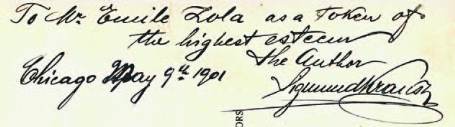 To Mr. Emile Zola as a Token of
the highest esteem
the Author
Chicago May 9th 1901
Sigmund Krausz
ORS